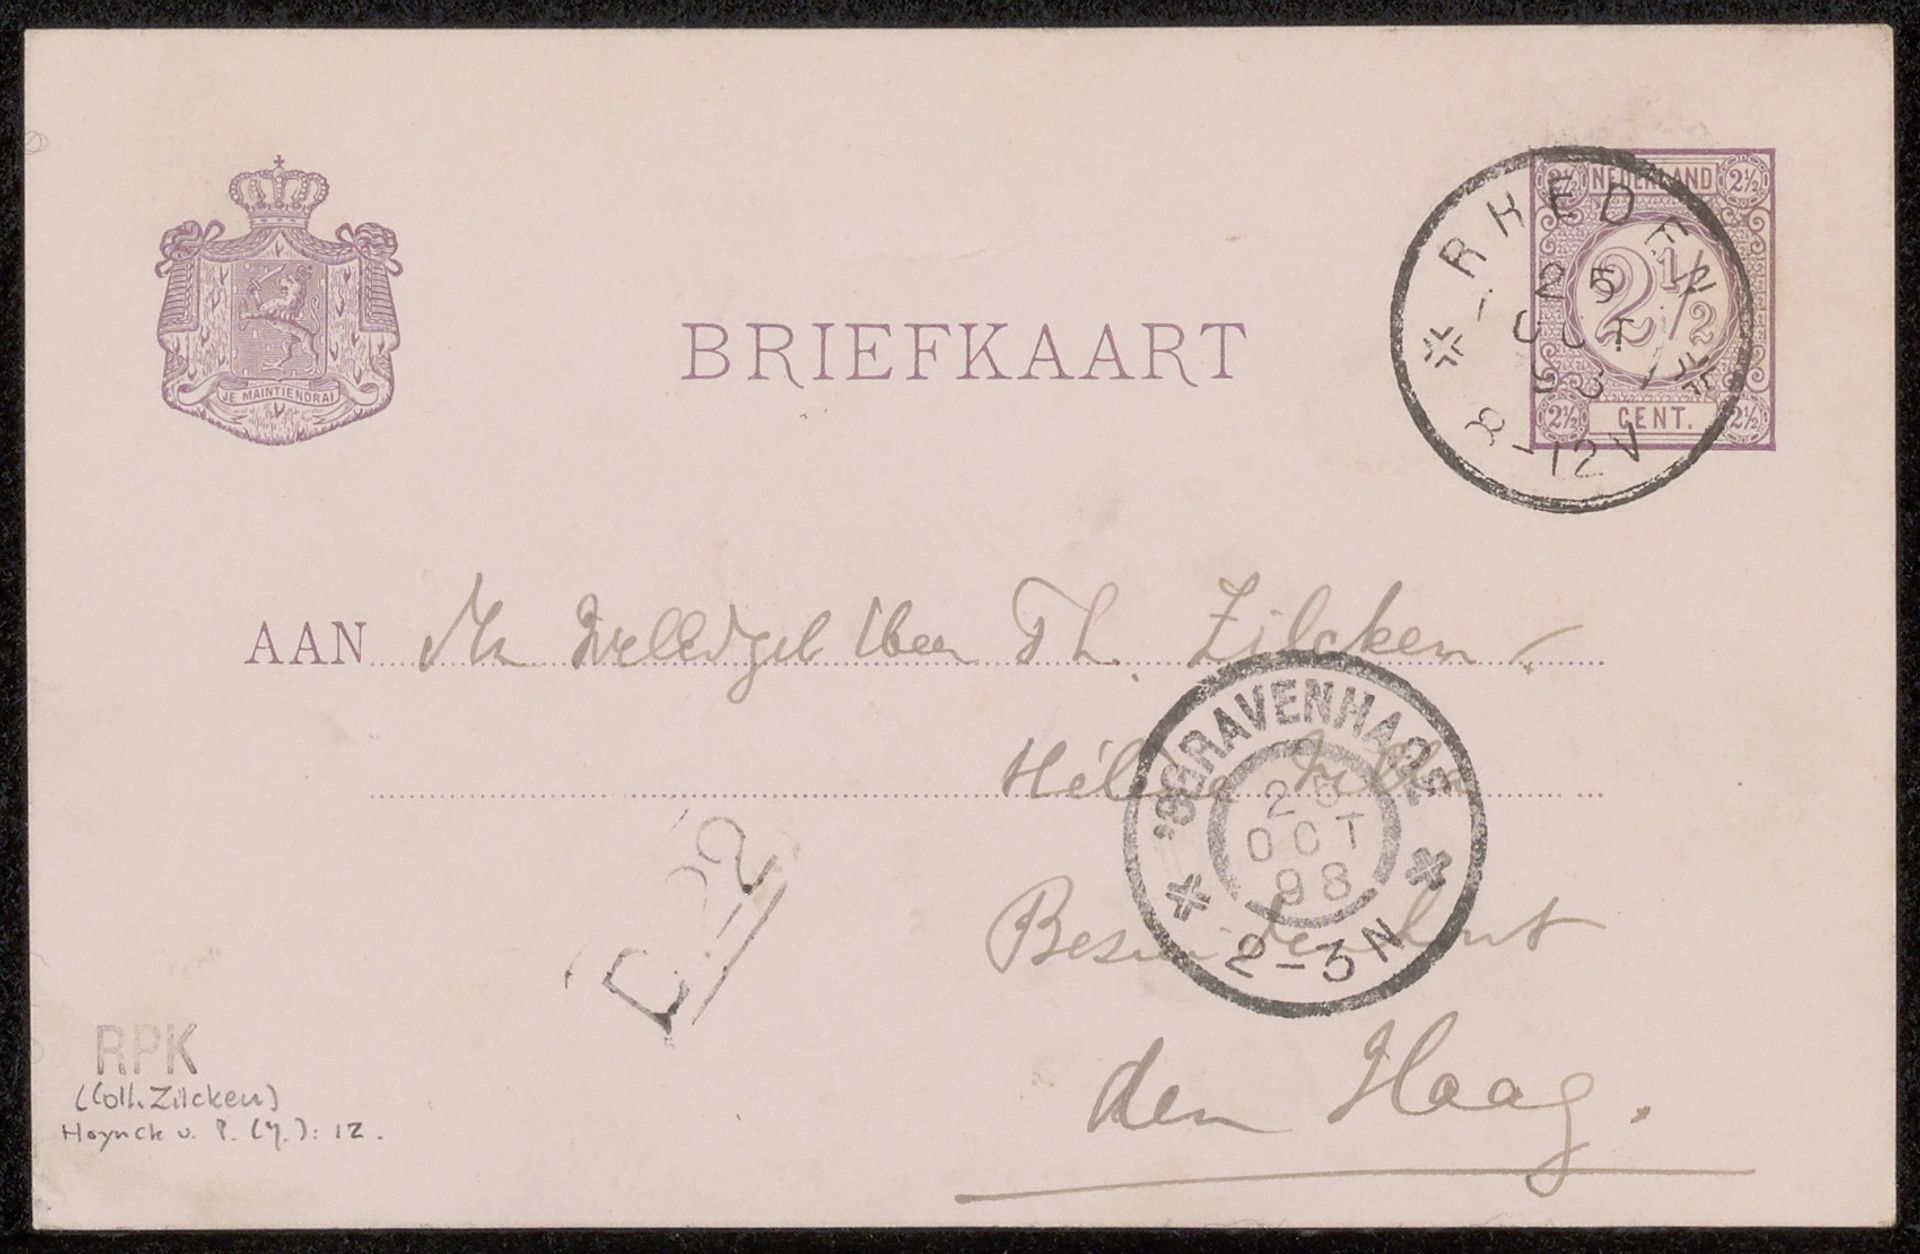 NEDERLAND
2½ 2½
2½
2½ CENT. 2½
RHEDEN
25
OCT
93
8-12V
JE MAINTIENDRAI
BRIEFKAART
AAN Den WelEdGeb Heer Th. Zilcken.
Hélène Villa
Besuidenhout
den Haag.
'SGRAVENHAGE
25
OCT
93
2-3N
RPK
(Coll. Zilcken)
Hoynck v. P. (7.): 12.